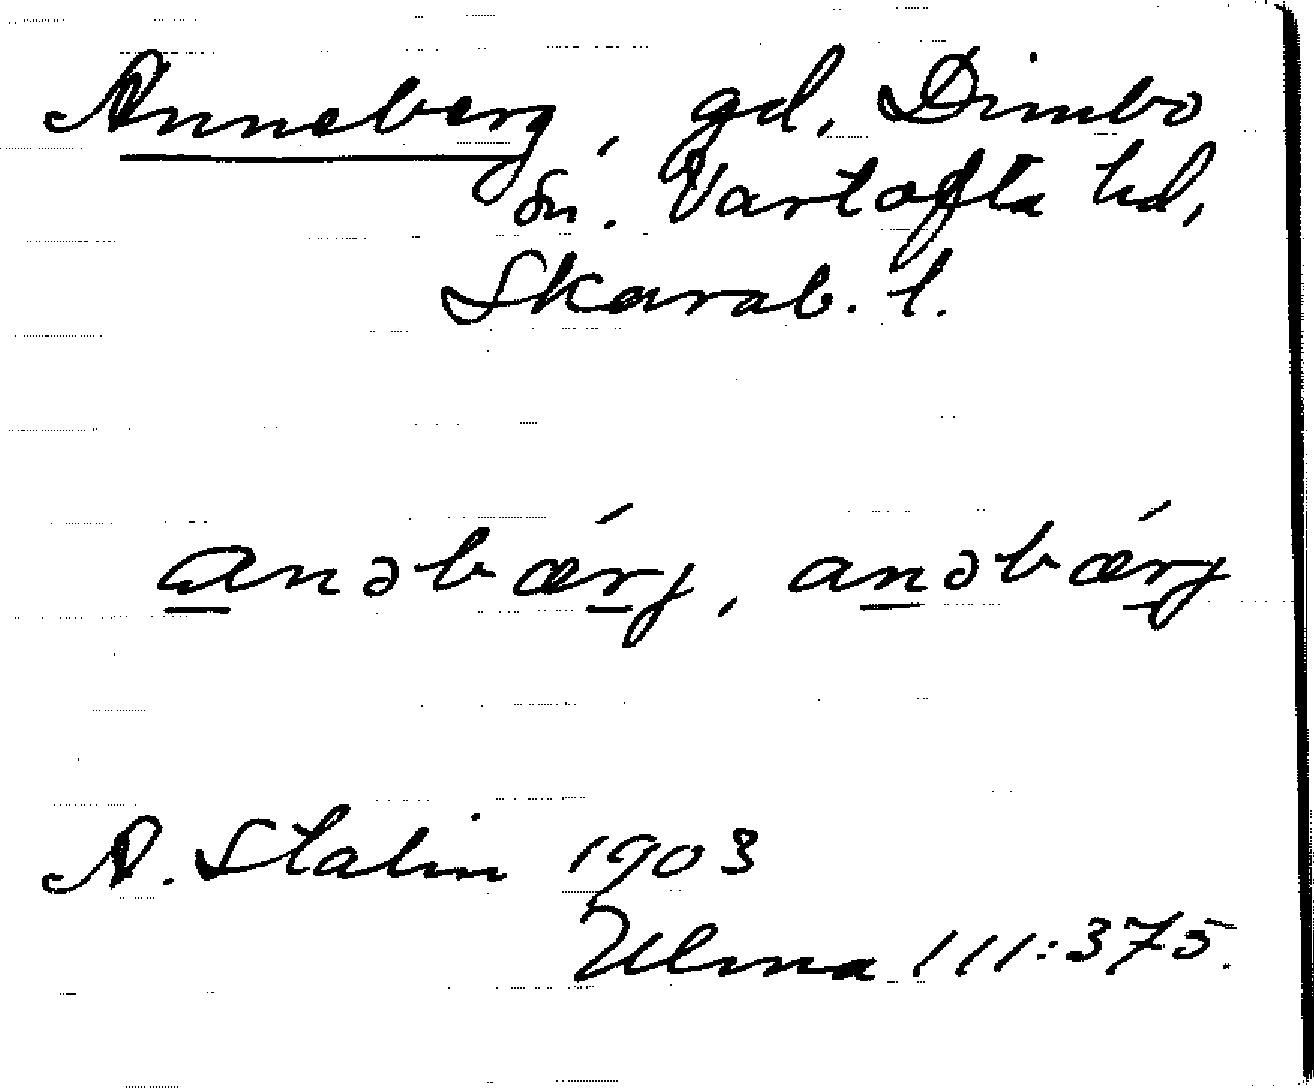 Anneberg, gd, Dimbo
sn. Vartofta hd,
Skarab. l.
anəbǽrj, anəbǽrj
A. Stalin 1903
Ulma 111:375.